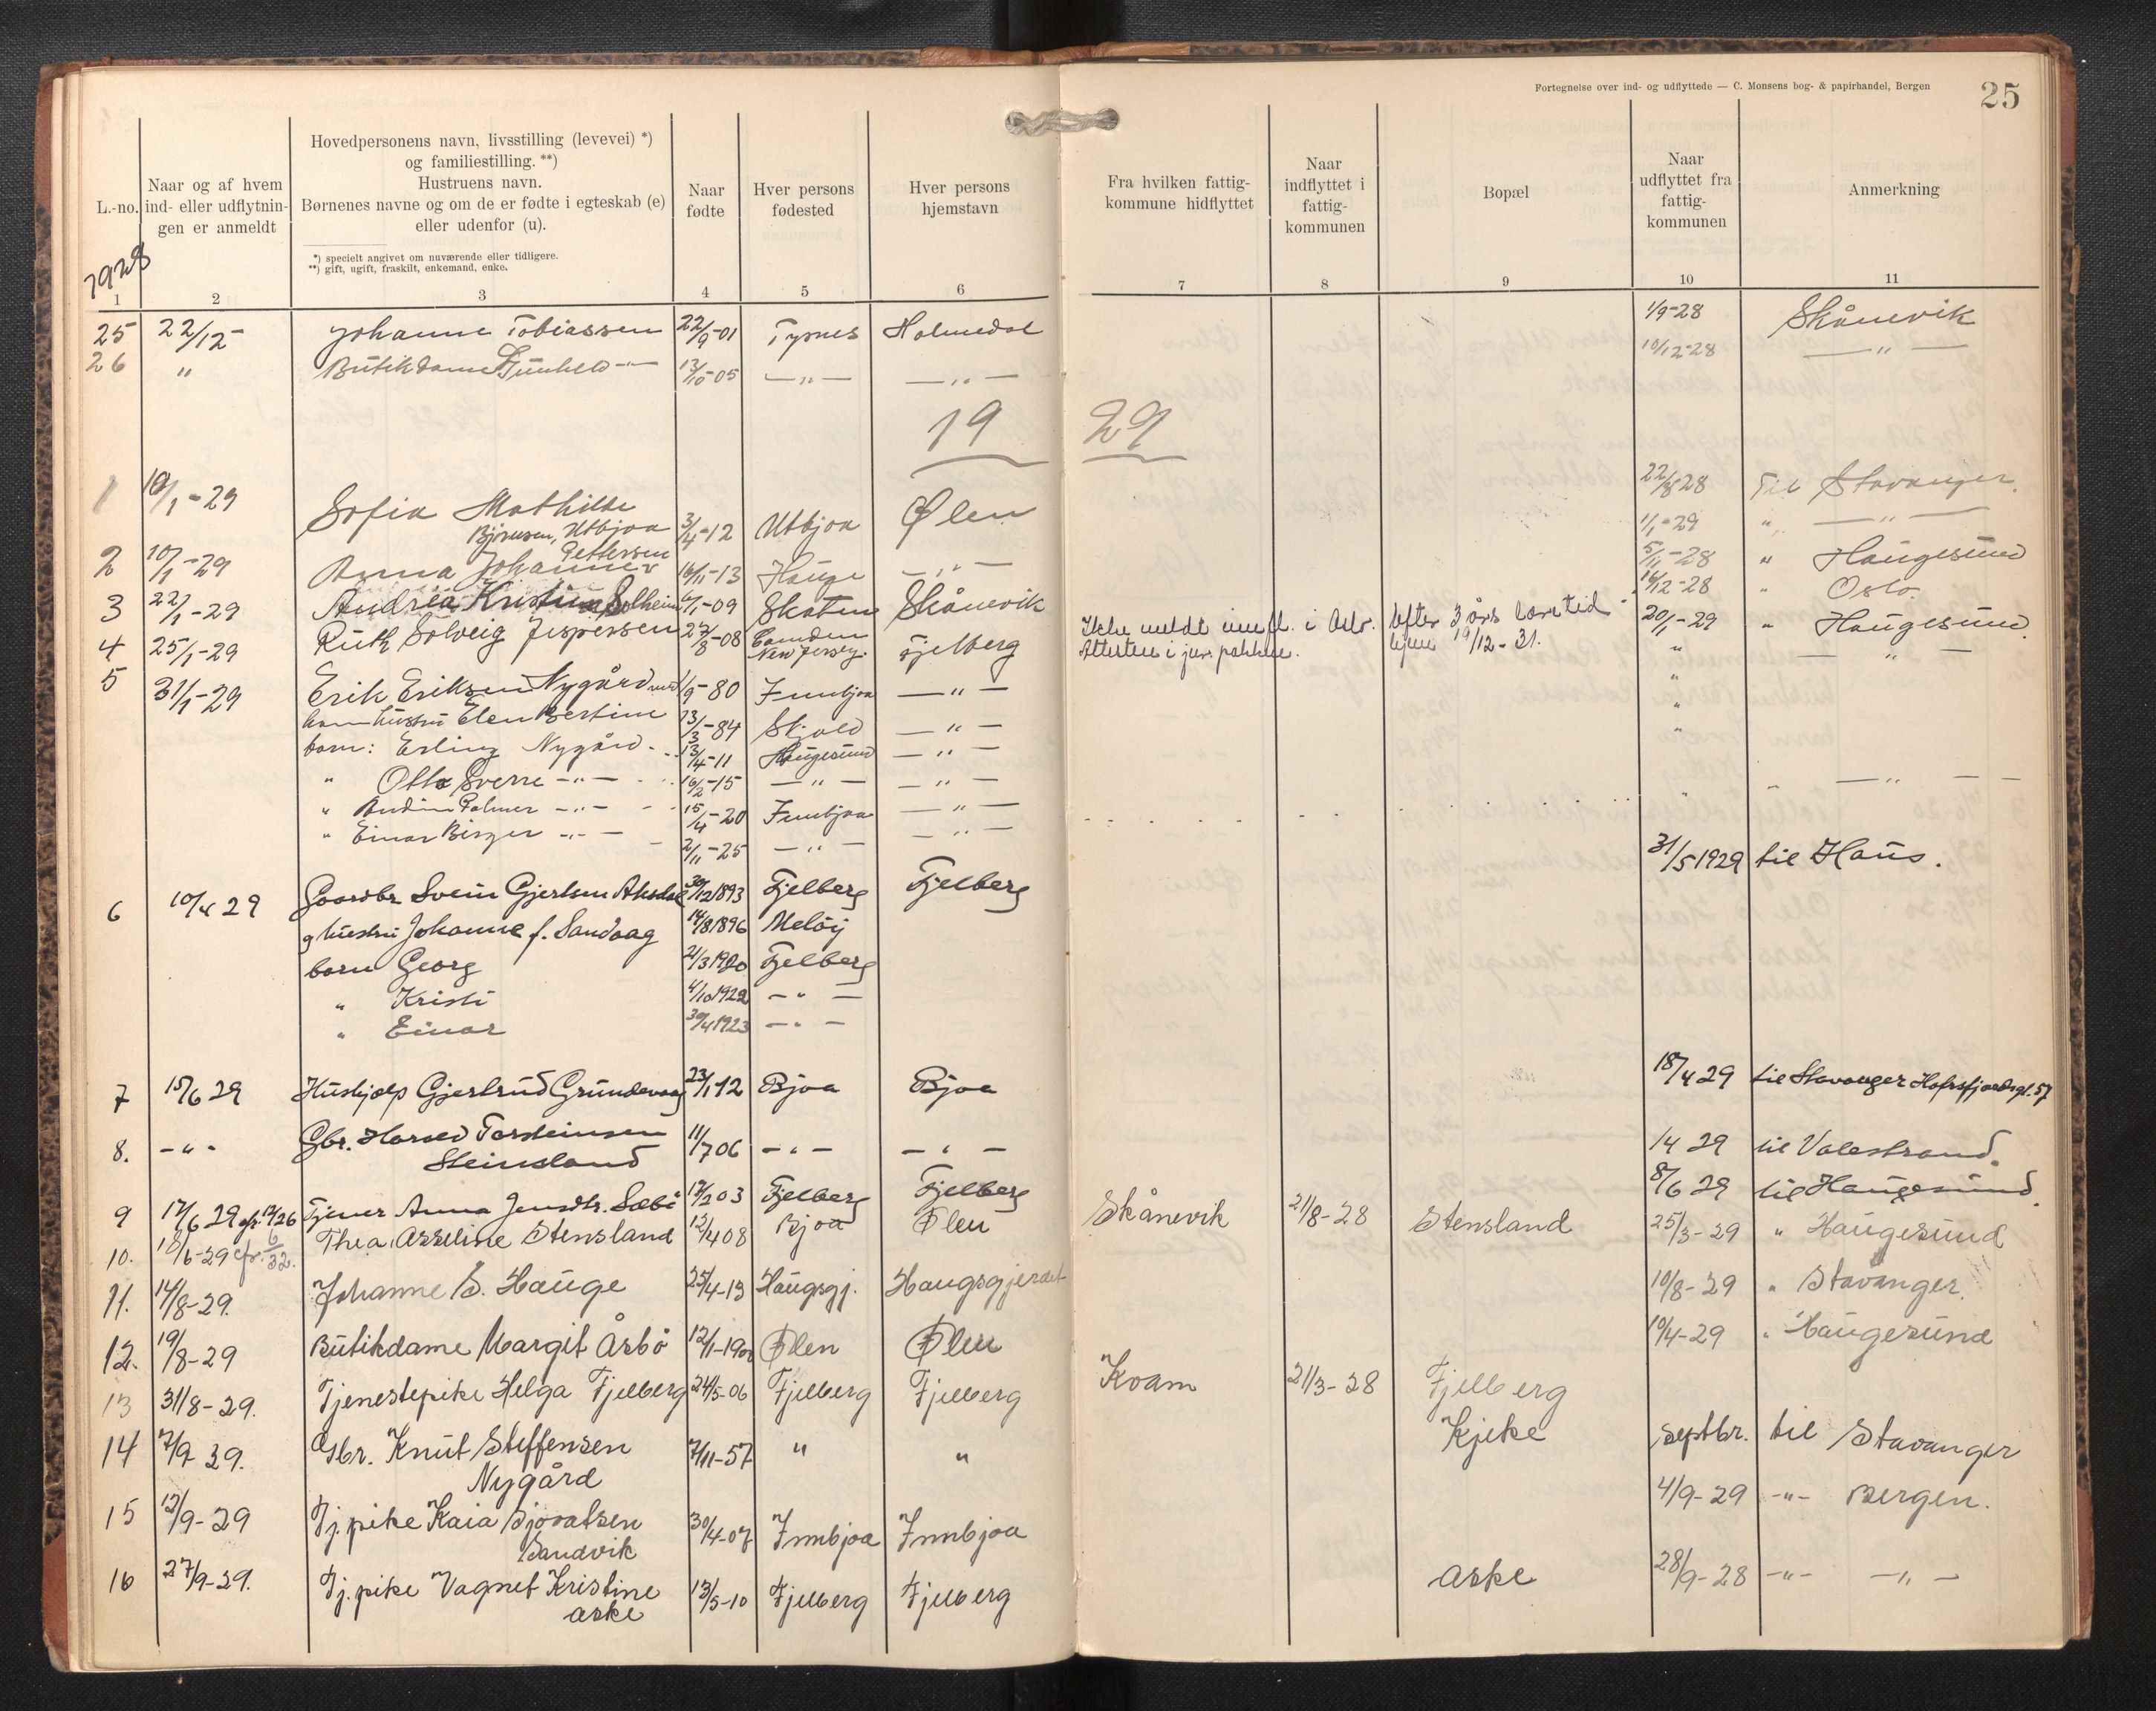 Fortegnelse over ind- og udflyttede — C. Monsens bog- & papirhandel, Bergen
25
L.-no.
Naar og af hvem
ind- eller udflytnin-
gen er anmeldt
Hovedpersonens navn, livsstilling (levevei) *)
og familiestilling. **)
Hustruens navn.
Børnenes navne og om de er fødte i egteskab (e)
eller udenfor (u).
*) specielt angivet om nuværende eller tidligere.
**) gift, ugift, fraskilt, enkemand, enke.
Naar
fødte
Hver persons
fødested
Hver persons
hjemstavn
Fra hvilken fattig-
kommune hidflyttet
Naar
indflyttet i
fattig-
kommunen
Bopæl
Naar
udflyttet fra
fattig-
kommunen
Anmerkning
1928
1 2 3 4 5 6 7 8 9 10 11
25 22/12- Johanne Tobiassen 22/9-01 Tysnes Holmedal 1/9-28 Skånevik
26 " Butikdame Gunhild -"- 13/10-05 -"- -"- 10/12-28 -"-
19 29
1 10/1-29 Sofia Mathilde
Bjørnsen, Utbjoa 3/4-12 Utbjoa Ølen 22/8-28 Til Stavanger.
2 10/1-29 Anna Johanne Pettersen 16/11-13 Hauge -"- 1/1-29 " -"-
3 22/1-29 Andrea Kristine Solheim 6/1-09 Skaten Skånevik 5/11-28 " Haugesund
4 25/1-29 Ruth Solveig Jespersen 27/8-08 Camden
New Jersey. Fjelberg Ikke meldt innfl. i Oslo. Efter 3 års læretid 16/12-28 " Oslo.
Attesten i jur. pakken. hjem 19/12-31.
5 31/1-29 Erik Eriksen Nygård med 1/9-80 Innbjoa -"- 20/1-29 " Haugesund.
hustru Elen Bertine 13/3-84 Skjold -"- " -"-
barn: Erling Nygård 13/4-11 Haugesund -"- "
" Otto Sverre -"- 16/2-15 -"- -"- "
" Palmer -"- 15/4-20 Innbjoa -"- "
" Einar Birger -"- 2/11-25 -"- -"- " -"-
6 10/4 29 Gaardbr Svein Gjertsen 30/12 1893 Fjelberg Fjelberg 31/5 1929 til Haus.
g hustru Johanne f. Sandvag 14/8 1896 Meløy
barn Georg 21/3 1920 Fjelberg
" Kristi 4/10 1922 -"-
" Einar 30/4 1923 -"-
7 15/6 29 Hushjælp Gjertrud Grundevaag 23/1 12 Bjoa Bjoa 18/4 29 til Stavanger Hafrsfjordsgt. 57
8. -"- Gbr. Harald Torsteinsen
Steinsland 11/7 06 -"- -"- 14 29 til Valestrand.
9 17/6 29 Tjener Anna Jensdtr. Sæbö 17/2 03 Fjelberg Fjelberg 8/6 29 til Haugesund.
10. 18/6-29 cfr. 6/32. Thea Asseline Stensland 12/4 08 Bjoa Ølen Skånevik 21/8-28 Stensland 25/3-29 " Haugesund
11. 14/8-29. Johanne S. Hauge 25/4-13 Haugsgj. Haugsgjerdet 10/8-29 " Stavanger.
12. 19/8-29 Butikdame Margit Åsbö 12/1-1900 Ølen Ølen 10/4-29 " Haugesund
13 31/8-29. Tjenestepike Helga Fjelberg 24/5-06 Fjelberg Fjelberg Kvam 21/3-28 Fjellberg
14 7/9 39. Gbr. Knut Steffensen
Nygård 7/11-57 " " Kjeke septbr. til Stavanger
15 12/9-29 Tj.pike Kaia Sjovatsen
Sandvik 30/4-07 Innbjoa Innbjoa 4/9-29 -"- Bergen.
16 27/9-29. Tj.pike Vagnet Kristine
Aske 13/5-10 Fjellberg Fjellberg Aske 28/9-28 -"- -"-